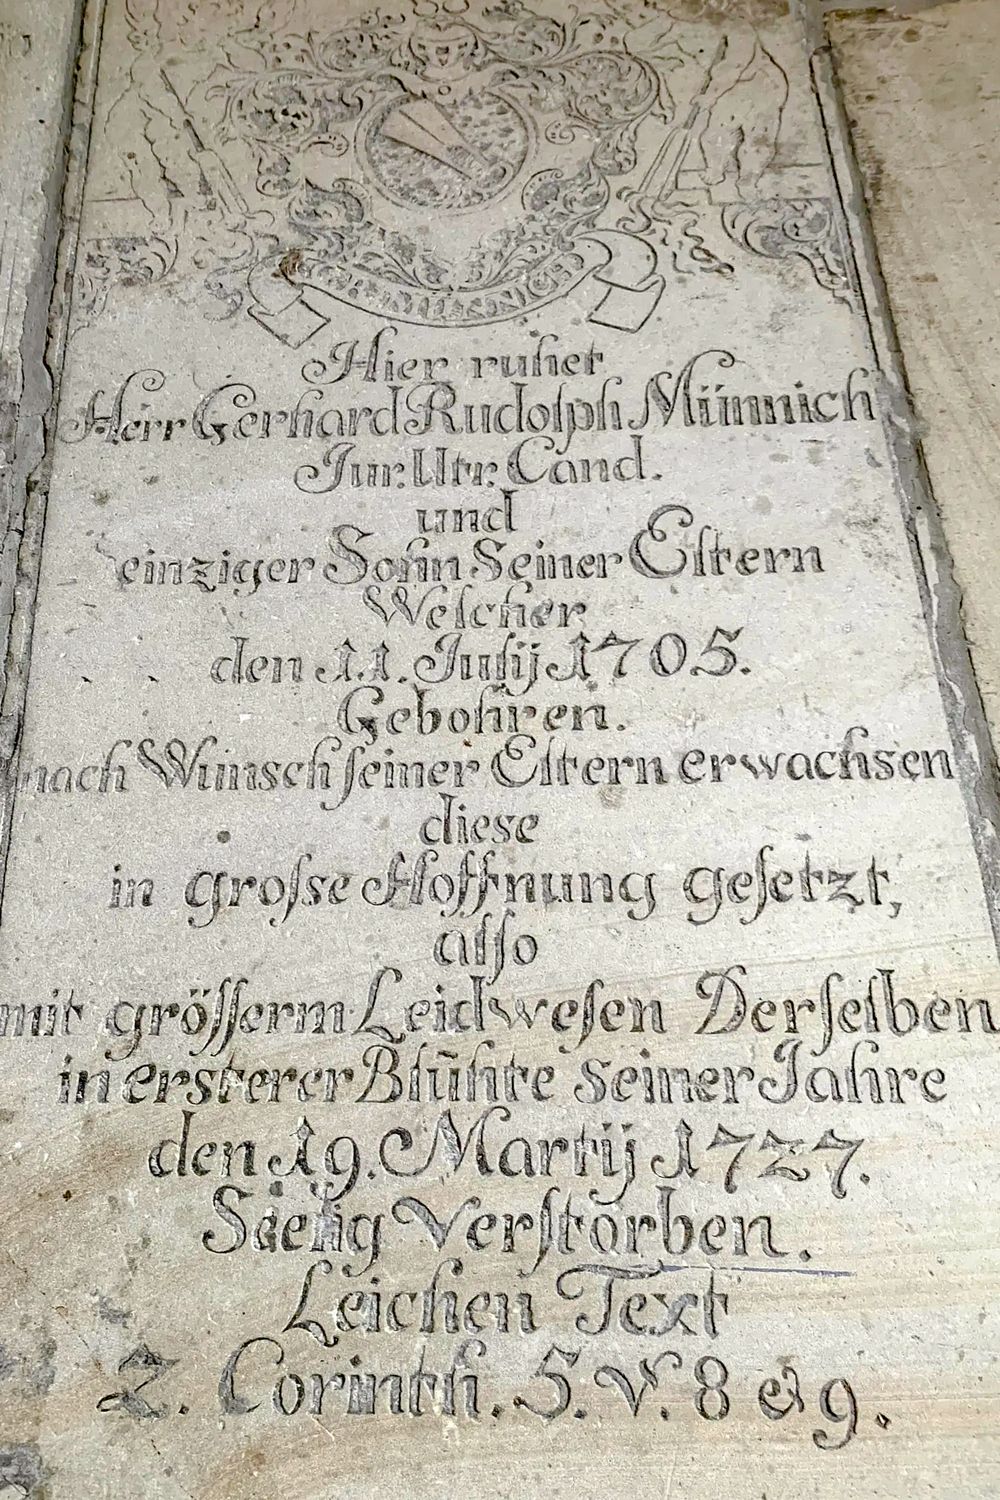 Hier ruhet
Herr Gerhard Rudolph Münnich
Jur. Utr. Cand.
und
einziger Sohn Seiner Eltern
Welcher
den 11. Julij 1705.
Gebohren.
nach Wunsch ſeiner Eltern erwachsen
diese
in groſse Hoffnung geſetzt,
alſo
mit gröſſerm Leidweſen Derſelben
in ersterer Blühte Seiner Jahre
den 19. Martij 1727.
Seelig Verſtorben.
Leichen Text
2. Corinth. 5. V. 8 & 9.